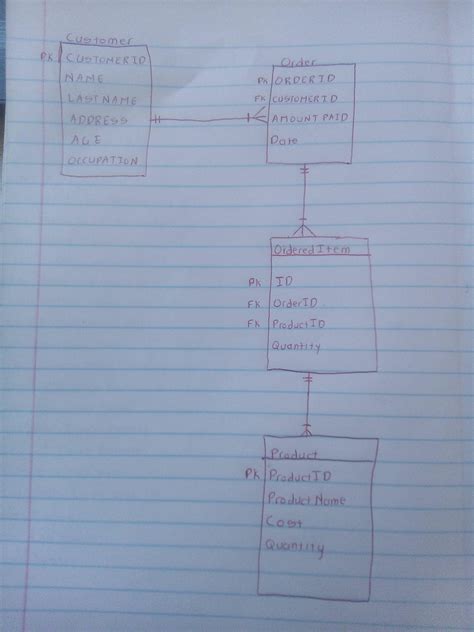 Customer
PK CUSTOMERID
NAME
LASTNAME
ADDRESS
AGE
OCCUPATION
Order
PK ORDERID
FK CUSTOMERID
AMOUNT PAID
Date
OrderedItem
PK ID
FK OrderID
FK ProductID
Quantity
Product
PK ProductID
Product Name
Cost
Quantity